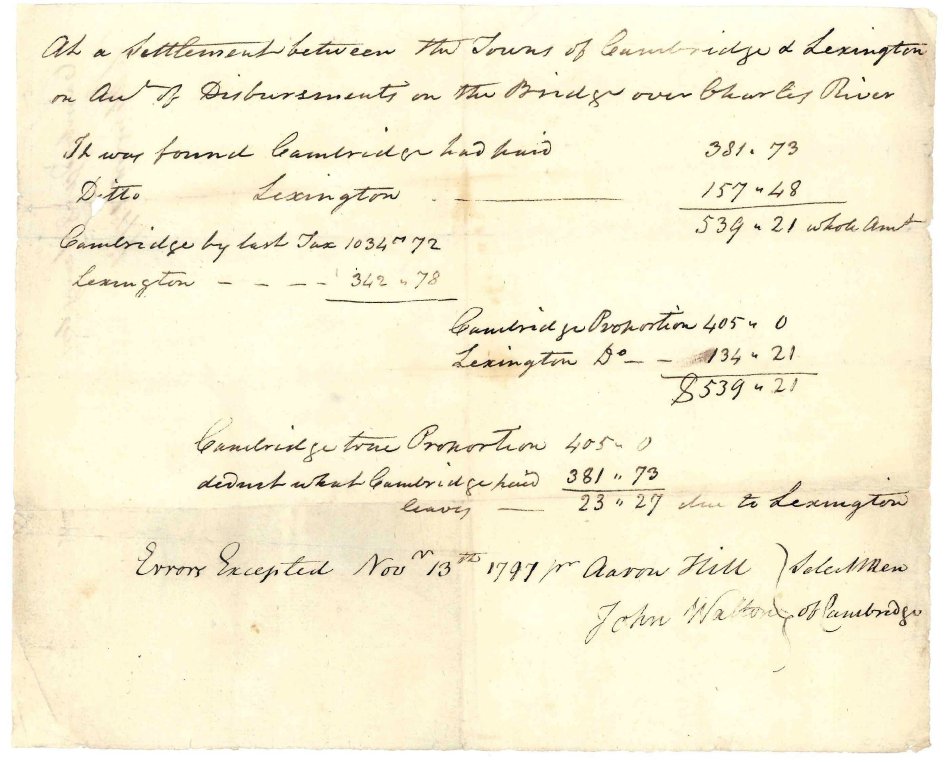 At a Settlement between the Towns of Cambridge & Lexington
on Acct. of Disbursments on the Bridge over Charles River
It was found Cambridge had paid 381 " 73
Ditto Lexington . —— 157 " 48
539 " 21 whole Amt.
Cambridge by last Tax 1034 " 72
Lexington - - - - 342 " 78
Cambridge Proportion 405 " 0
Lexington Do - - 134 " 21
$539 " 21
Cambridge true Proportion 405 " 0
deduct what Cambridge paid 381 " 73
leaves — 23 " 27 due to Lexington
Errors Excepted Novr 13th 1797 pr Aaron Hill } Select Men
John Walton } of Cambridge